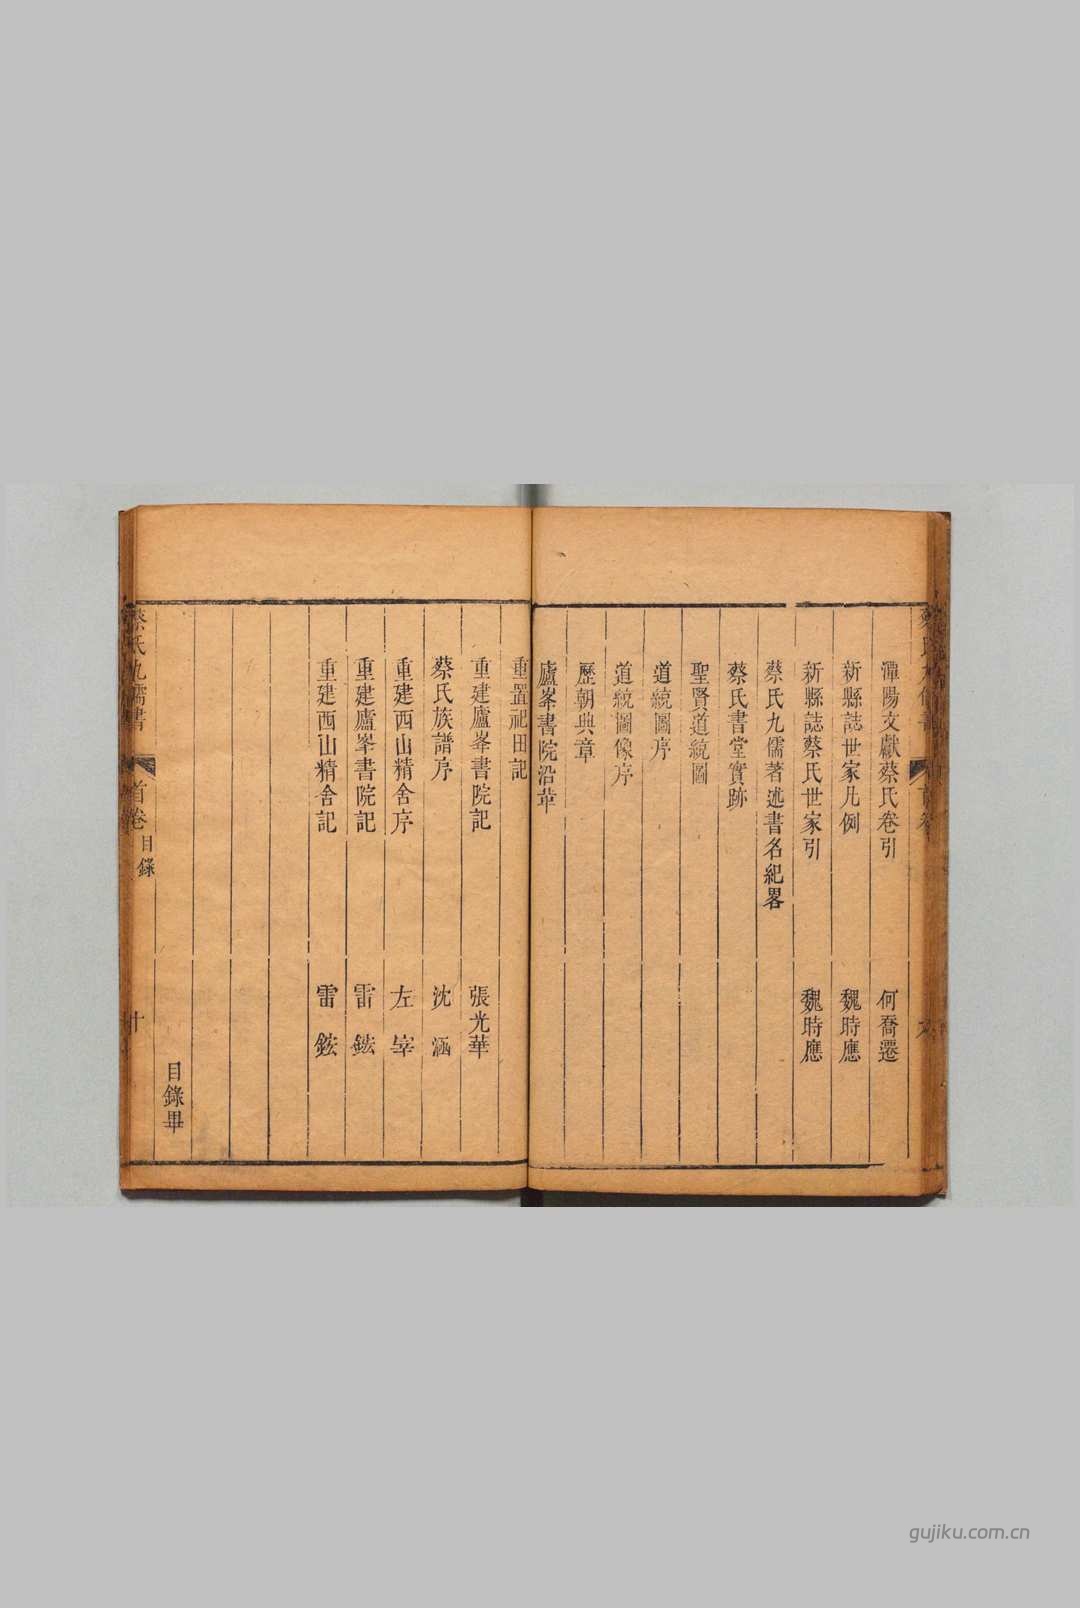 潭陽文獻蔡氏卷引 何喬遷
新縣誌世家凡例 魏時應
新縣誌蔡氏世家引 魏時應
蔡氏九儒著述書名紀畧
蔡氏書堂實跡
聖賢道統圖
道統圖序
道統圖像序
歷朝典章
廬峯書院沿革
重置祀田記
重建廬峯書院記 張光華
蔡氏族譜序 沈涵
重建西山精舍序 左宰
重建廬峯書院記 雷鋐
重建西山精舍記 雷鋐
目錄畢
蔡氏九儒書 首卷 目錄 十
gujiku.com.cn